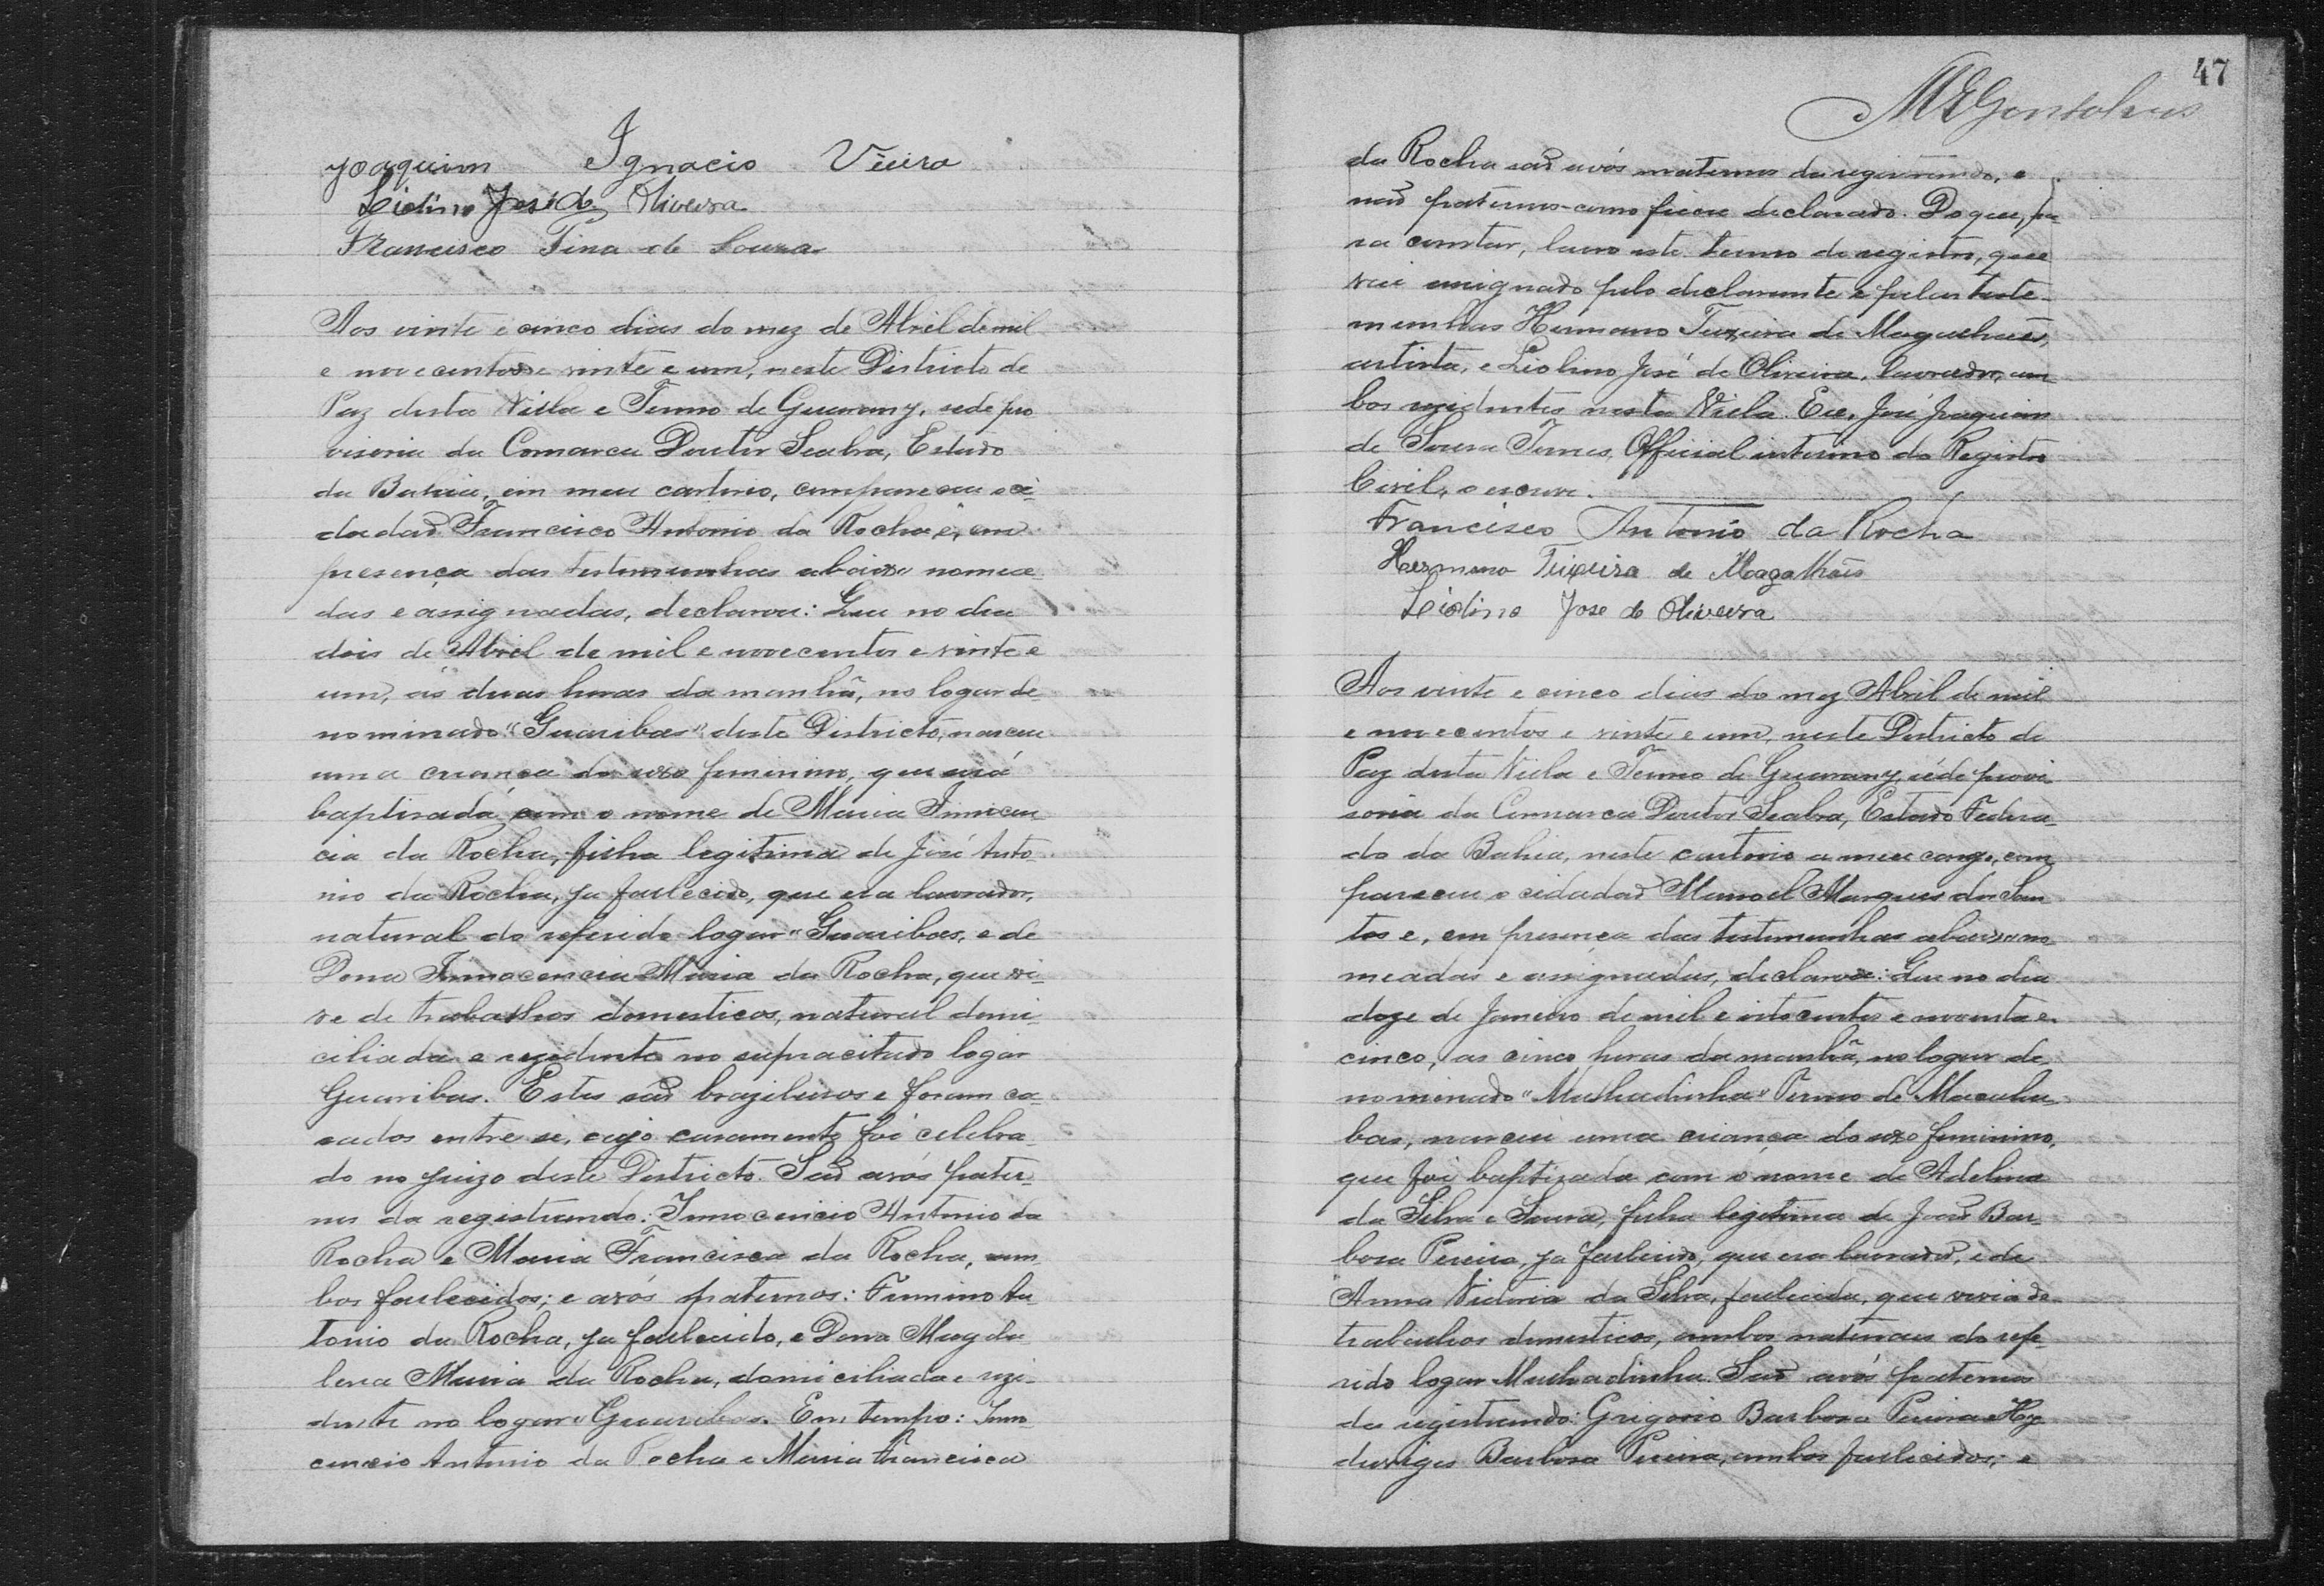 Joaquim Ignacio Vieira
Liolino José de Oliveira
Francisco Pina de Souza
Aos vinte e cinco dias do mez de Abril de mil
e novecentos e vinte e um, neste Districto de
Paz desta Villa e Termo de Guarany, sede pro
visoria da Comarca Doutor Seabra, Estado
da Bahia, em meu cartorio, compareceu o ci-
dadaõ Francisco Antonio da Rocha e, em
presença das testemunhas abaixo nomea-
das e assignadas, declarou: Que no dia
dois de Abril de mil e novecentos e vinte e
um, ás duas horas da manhã, no logar de-
nominado "Guaribas" deste Districto, nasceu
uma criança do sexo feminino, que será
baptisada com o nome de Maria Innocen
cia da Rocha, filha legitima de José Anto-
nio da Rocha, ja fallecido, que era lavrador,
natural do referido logar "Guaribas, e de
Dona Innocencia Maria da Rocha, que vi-
ve de trabalhos domesticos, natural domi-
ciliada e rezidente no supracitado logar
Guaribas. Estes saõ brazileiros e foram ca-
sados entre se, cujo casamento foi celebra-
do no juizo deste Districto. Saõ avós pater-
nos da registrando: Innocencio Antonio da
Rocha e Maria Francisca da Rocha, am-
bos fallecidos; e avós paternos: Firmino An
tonio da Rocha, ja fallecido, e Dona Magda
lena Maria da Rocha, domiciliada e rezi-
dente no logar "Guaribas. Em tempo: Inno-
cencio Antonio da Rocha e Maria Francisca
47
MEGonsalves
da Rocha saõ avós maternos da registrando, e
naõ paternos como ficou declarado. Do que, pa
ra constar, lavro este termo de registro, que
vai assignado pelo declarante e pelas teste-
munhas Hermano Teixeira de Magalhaẽs,
artista, e Liolino José de Oliveira, lavrador, am-
bos rezidentes nesta Villa. Eu, José Joaquim
de Souza Torres, Official interino do Registro
Civil, o escrevi.
Francisco Antonio da Rocha
Hermano Teixeira de Magalhaẽs
Liolino Jose de Oliveira
Aos vinte e cinco dias do mez Abril de mil
e novecentos e vinte e um, neste Districto de
Paz desta Villa e Termo de Guarany, séde provi
soria da Comarca Doutor Seabra, Estado Federa-
do da Bahia, neste cartorio a meu cargo, com
pareceu o cidadaõ Manoel Marques dos San
tos e, em presença das testemunhas abaixo no-
meadas e assignadas, declarou: Que no dia
doze de Janeiro de mil e oitocentos e noventa e
cinco, as cinco horas da manhã, no logar de-
nominado "Malhadinha" Termo de Macahu-
bas, nasceu uma criança do sexo feminino,
que foi baptizada com o nome de Adelina
da Silva e Souza, filha legitima de João Bar-
bosa Pereira, ja fallecido, que era lavrador, e de
Anna Victoria da Silva, fallecida, que vivia de
trabalhos domesticos, ambos naturaes do refe-
rido logar Malhadinha. Saõ avós paternos
da registrando: Grigorio Barbosa Pereira e
duviges Barbosa Pereira, ambos fallecidos; e